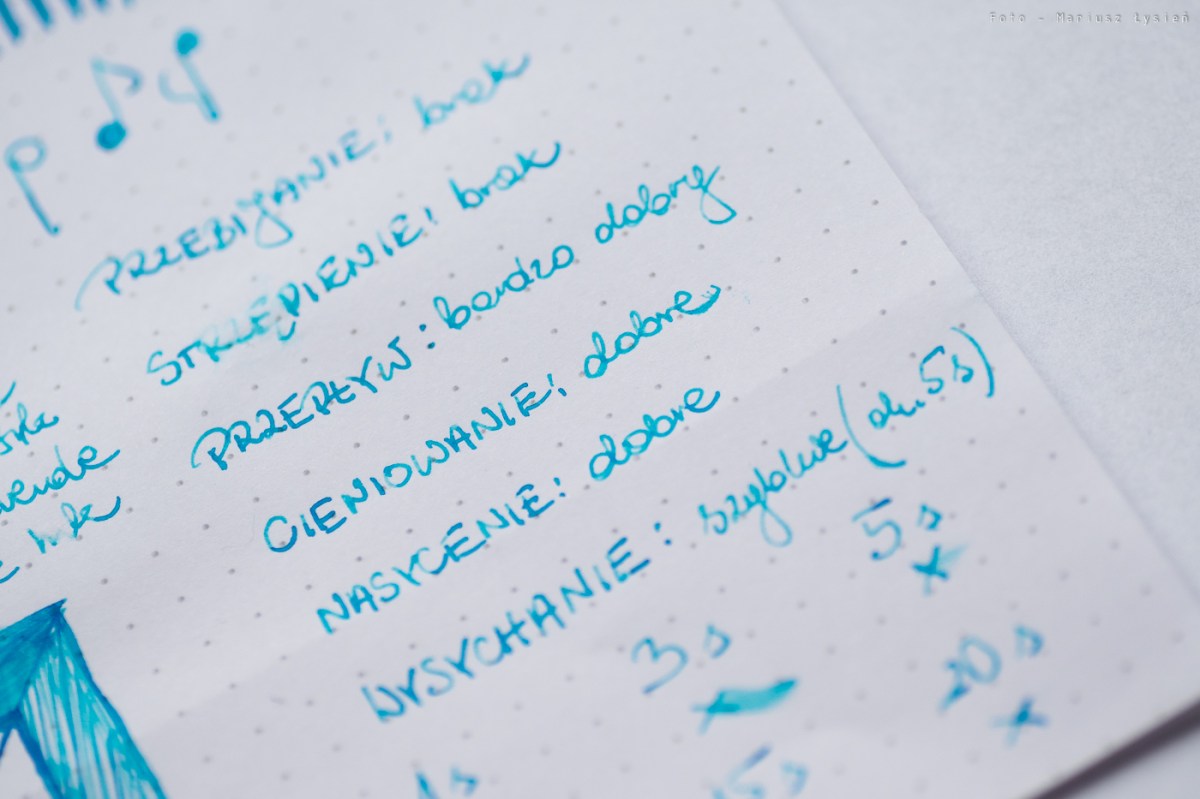 Foto - Mariusz Łysień
PRZEBIJANIE: brak
STRZĘPIENIE: brak
PRZEPŁYW: bardzo dobry
CIENIOWANIE: dobre
NASYCENIE: dobre
WYSYCHANIE: szybkie (ok. 5s)
1s
3s
5s
15s